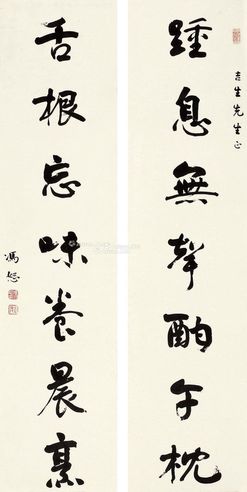 踵息無聲酣午枕
吉生先生正
舌根忘味養晨烹
馮恕